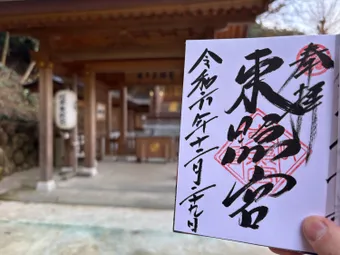 奉拝
東照宮
令和六年十二月二十九日